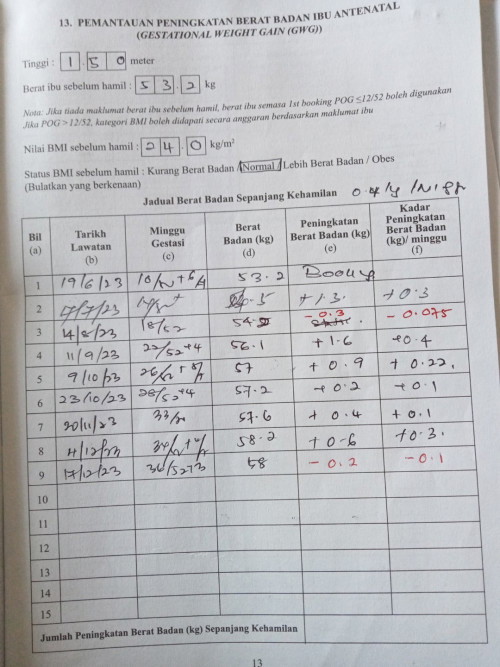 13. PEMANTAUAN PENINGKATAN BERAT BADAN IBU ANTENATAL
(GESTATIONAL WEIGHT GAIN (GWG))
Tinggi : 1 . 5 0 meter
Berat ibu sebelum hamil : 5 3 . 2 kg
Nota: Jika tiada maklumat berat ibu sebelum hamil, berat ibu semasa 1st booking POG ≤12/52 boleh digunakan
Jika POG >12/52, kategori BMI boleh didapati secara anggaran berdasarkan maklumat ibu
Nilai BMI sebelum hamil : 2 4 . 0 kg/m²
Status BMI sebelum hamil : Kurang Berat Badan / Normal / Lebih Berat Badan / Obes
(Bulatkan yang berkenaan)
Jadual Berat Badan Sepanjang Kehamilan
Bil (a) Tarikh Lawatan (b) Minggu Gestasi (c) Berat Badan (kg) (d) Peningkatan Berat Badan (kg) (e) Kadar Peningkatan Berat Badan (kg)/ minggu (f)
1 19/6/23 53.2
2 +1.3 +0.3
3 14/8/23 18/52 - 0.3 - 0.075
4 11/9/23 22/52+4 56.1 +1.6 +0.4
5 9/10/23 57 + 0.9 + 0.22
6 23/10/23 28/52+4 57.2 +0.2 +0.1
7 20/11/23 57.6 + 0.4 + 0.1
8 4/12/23 58.2 +0.6 +0.3
9 17/12/23 36/52+3 58 - 0.2 - 0.1
10
11
12
13
14
15
Jumlah Peningkatan Berat Badan (kg) Sepanjang Kehamilan
13